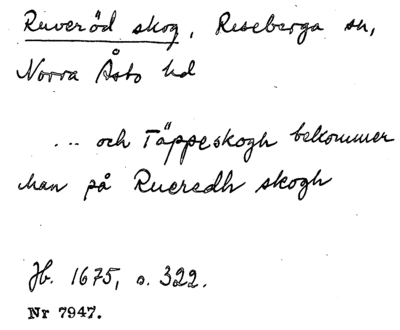 Ruveröd skog, Riseberga sn,
Norra Åsbo hd
... och Täppeskogh bekommer
man på Rueredh skogh
Jb. 1675, s. 322.
Nr 7947.